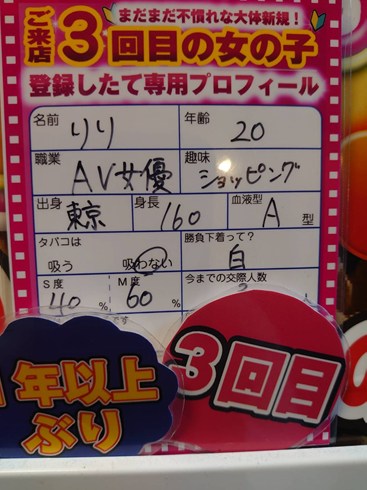 まだまだ不慣れな大体新規！
ご来店3回目の女の子
登録したて専用プロフィール
名前 りり 年齢 20
職業 AV女優 趣味 ショッピング
出身 東京 身長 160 血液型 A 型
タバコは 吸う 吸わない 勝負下着って？ 白
S度 40 % M度 60 % 今までの交際人数
年以上ぶり
3回目